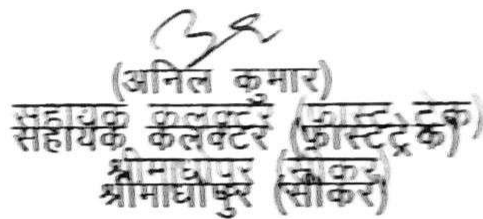 (अनिल कुमार)
सहायक कलेक्टर (फास्टट्रेक)
श्रीमाधोपुर (सीकर)